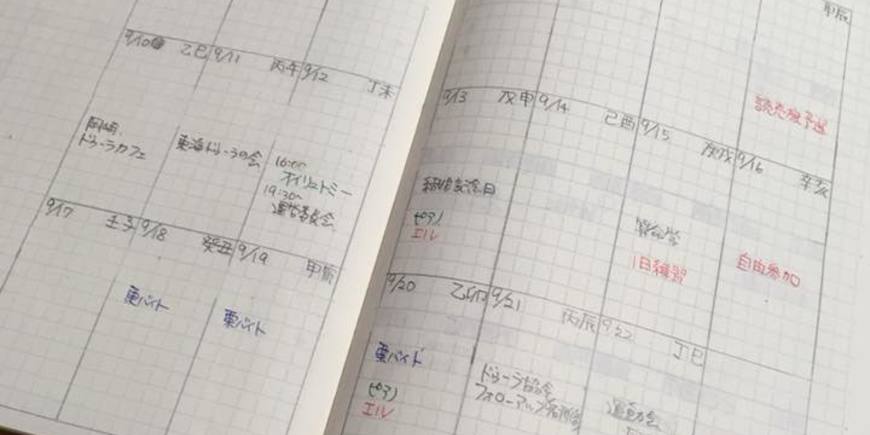 9/10 乙巳 9/11 丙午 9/12 丁未
岡崎
ドゥーラカフェ
東海ドゥーラの会
16:00
オイリュトミー
19:30〜
運営委員会
9/17 壬子 9/18 癸丑 9/19 甲寅
栗バイト
栗バイト
甲辰
9/13 戊申 9/14 己酉 9/15 庚戌 9/16 辛亥
結婚記念日
(ピアノ)
エル
算命学
1日練習
自由参加
9/20 乙卯 9/21 丙辰 9/22 丁巳
栗バイト
(ピアノ)
エル
ドゥーラ協会
フォローアップ
運動会